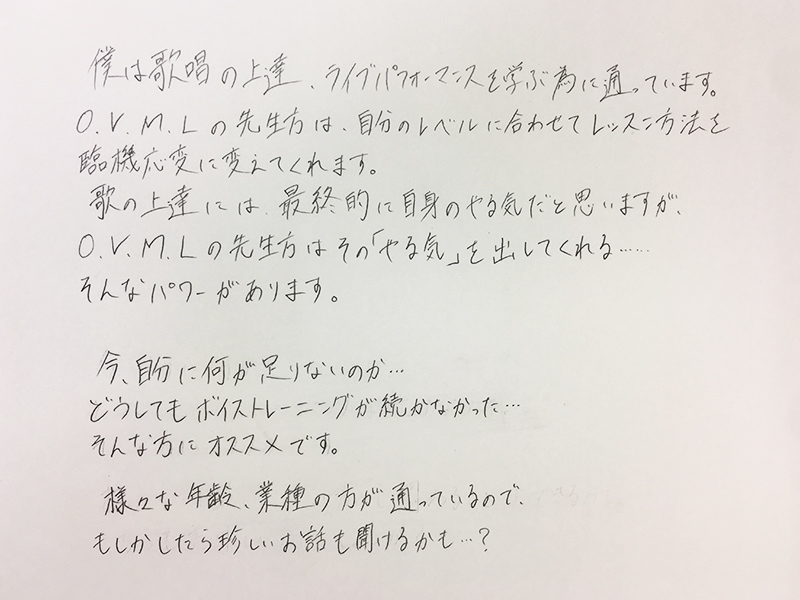 僕は歌唱の上達、ライブパフォーマンスを学ぶ為に通っています。
O.V.M.Lの先生方は、自分のレベルに合わせてレッスン方法を
臨機応変に変えてくれます。
歌の上達には、最終的に自身のやる気だと思いますが、
O.V.M.Lの先生方はその「やる気」を出してくれる……
そんなパワーがあります。
今、自分に何が足りないのか…
どうしてもボイストレーニングが続かなかった…
そんな方にオススメです。
様々な年齢、業種の方が通っているので、
もしかしたら珍しいお話も聞けるかも…?